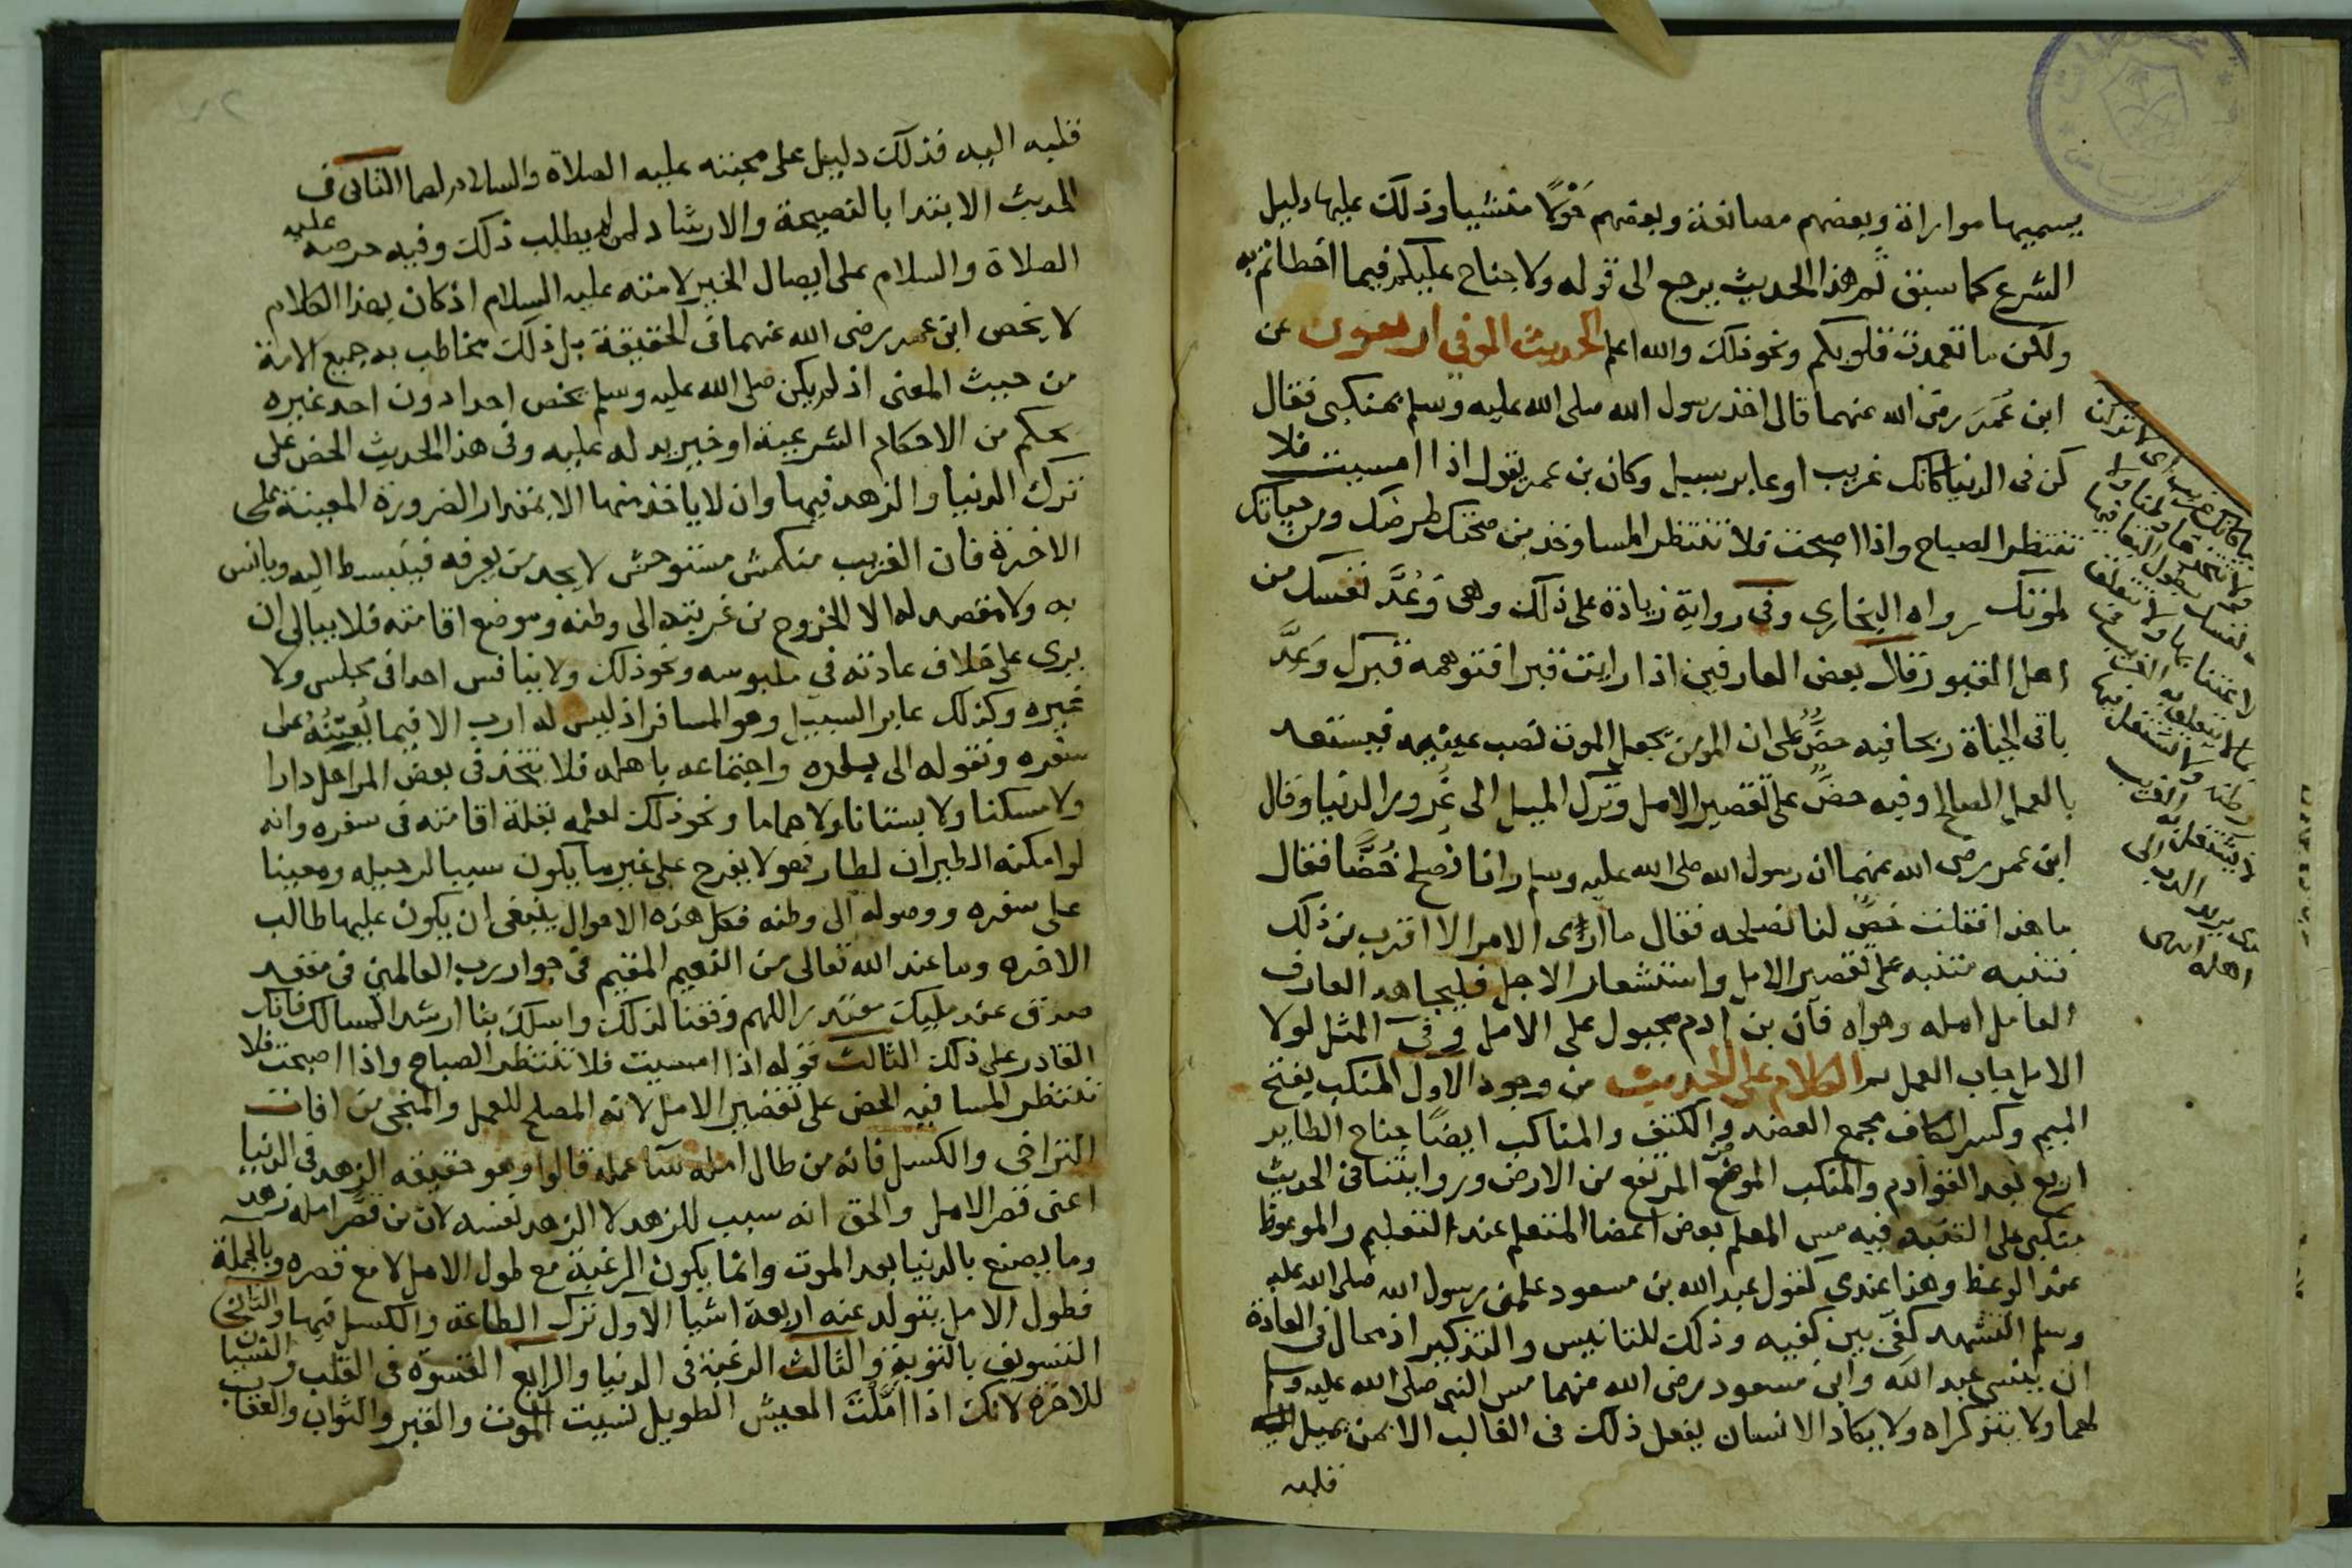 يسميها موازاة وبعضهم مصانعة وبعضهم قولا متشيا وذلك عليها دليل
الشرع كما سبق ثم هذا الحديث يرجع الى قوله ولا جناح عليكم فيما اخطاتم به
ولكن ما تعمدت قلوبكم ونحو ذلك والله اعلم الحديث الموفي اربعون عن
ابن عُمَرَ رضى الله عنهما قال اخذ رسول الله صلى الله عليه وسلم بمنكبى فقال
كن فى الدنيا كانك غريب او عابر سبيل وكان بن عمر يقول اذا امسيت فلا
تنتظر الصباح واذا اصبحت فلا تنتظر المسا وخذ من صحتك لمرضك ومن حياتك
لموتك رواه البخارى وفى رواية زيادة على ذلك وهى وَعُدَّ نفسك من
اهل القبور قال بعض العارفين اذا رايت قبرا فتوهمه قبرك وَعِدَّ
باقى الحياة ربحا فيه حضٌّ على ان المومن يجعل الموت نصب عينيه فيستعد
بالعمل الصالح وفيه حضٌّ على تقصير الامل وترك الميل الى غرور الدنيا وقال
ابن عمر رضى الله عنهما ان رسول الله صلى الله عليه وسلم وانا نصلح خُصًّا فقال
ما هذا فقلت خصٌّ لنا نصلحه فقال ما ارى الامر الا اقرب من ذلك
تنبيه منبه على تقصير الامل واستشعار الاجل فليجاهد العارف
العامل امله وهواه فان بن ادم مجبول على الامل وفى المثل لولا
الامل خاب العمل ثم الكلام على الحديث من وجوه الاول المنكب بفتح
الميم وكسر الكاف مجمع العضد والكتف والمناكب ايضًا جناح الطاير
اربع بعد القوادم والمنكب الموضع المرتفع من الارض وروايتنا فى الحديث
منكبى على التثنيه فيه مس المعلم بعض اعضا المتعلم عند التعليم والموعوظ
عند الوعظ وهذا عندى كقول عبد الله بن مسعود علمنى رسول الله صلى الله عليه
وسلم التشهد كفى بين كفيه وذلك للتانيس والتذكير اذ محال فى العادة
ان ينسى عبد الله وابن مسعود رضى الله عنهما مس النبى صلى الله عليه وسلم
لهما ولا يتذكراه ولا يكاد الانسان يفعل ذلك فى الغالب الا بمن يميل اليه
قلبه
اى لا تركن
كانك غريب
ولا تتخذها وطنا ولا
نفسك بطول البقا فيها
بالاعتنا بها ولا تتعلق
بما لا يتعلق به الغريب فى
وطنه ولا تشتغل فيها
بما لا يشتغل به الغريب
الذى يريد الذهاب الى
اهله انتهى
قلبه اليه فذلك دليل على محبته عليه الصلاة والسلام لهما الثانى فى
الحديث الابتدا بالنصيحة والارشاد لمن لم يطلب ذلك وفيه حرصه عليه
الصلاة والسلام على ايصال الخير لامته عليه السلام اذ كان بهذا الكلام
لا يخص ابن عمر رضى الله عنهما فى الحقيقة بل ذلك مخاطب به جميع الامة
من حيث المعنى اذ لم يكن صلى الله عليه وسلم يخص احدا دون احد غيره
بحكم من الاحكام الشرعية او خير يدله عليه وفى هذا الحديث الحض على
ترك الدنيا والزهد فيها وان لا ياخذ منها الا بمقدار الضرورة المعينة على
الاخرة فان الغريب منكمش مستوحش لا يجد من يعرفه فينبسط اليه ويانس
به ولا مقصد له الا الخروج من غربته الى وطنه وموضع اقامته فلا يبالى ان
يرى على خلاف عادته فى ملبوسه ونحو ذلك ولا ينافس احدا فى مجلس ولا
غيره وكذلك عابر السبيل وهو المسافر اذ ليس له ارب الا فيما يُعِينُهُ على
سفره ونقوله الى بلده واجتماعه باهله فلا يتخذ فى بعض المراحل دارا
ولا مسكنا ولا بستانا ولا حماما ونحو ذلك لعلمه بقلة اقامته فى سفره وانه
لو امكنه الطيران لطار فهو لا يفرح على غير ما يكون سببا لرحيله ومعينا
على سفره ووصوله الى وطنه فكل هذه الاحوال ينبغى ان يكون عليها طالب
الاخره وما عند الله تعالى من النعيم المقيم فى جوار رب العالمين فى مقعد
صدق عند مليك مقتدر اللهم وفقنا لذلك واسلك بنا ارشد المسالك فانك
القادر على ذلك الثالث قوله اذا امسيت فلا تنتظر الصباح واذا اصبحت فلا
تنتظر المسا فيه الحض على تقصير الامل لانه المصلح للعمل والمنجى من افات
التراخى والكسل فانه من طال امله سآ عمله قالوا وهو حقيقه الزهد فى الدنيا
اعنى قصر الامل والحق انه سبب للزهد لا الزهد نفسه لان من قصَّر امله زهد
وما يصنع بالدنيا بعد الموت وانما يكون الرغبة مع طول الامل لا مع قصره وبالجملة
فطول الامل يتولد عنه اربعة اشيا الاول ترك الطاعة والكسل فيها والثانى
التسويف بالتوبة والثالث الرغبة فى الدنيا والرابع القسوة فى القلب والنسيان
للاخرة لانك اذا امَّلت العيش الطويل نسيت الموت والقبر والثواب والعقاب